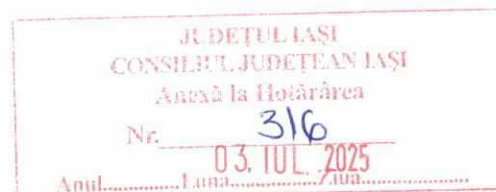 JUDEȚUL IAȘI
CONSILIUL JUDEȚEAN IAȘI
Anexă la Hotărârea
Nr. 316
03. IUL. 2025
Anul............Luna............Ziua............